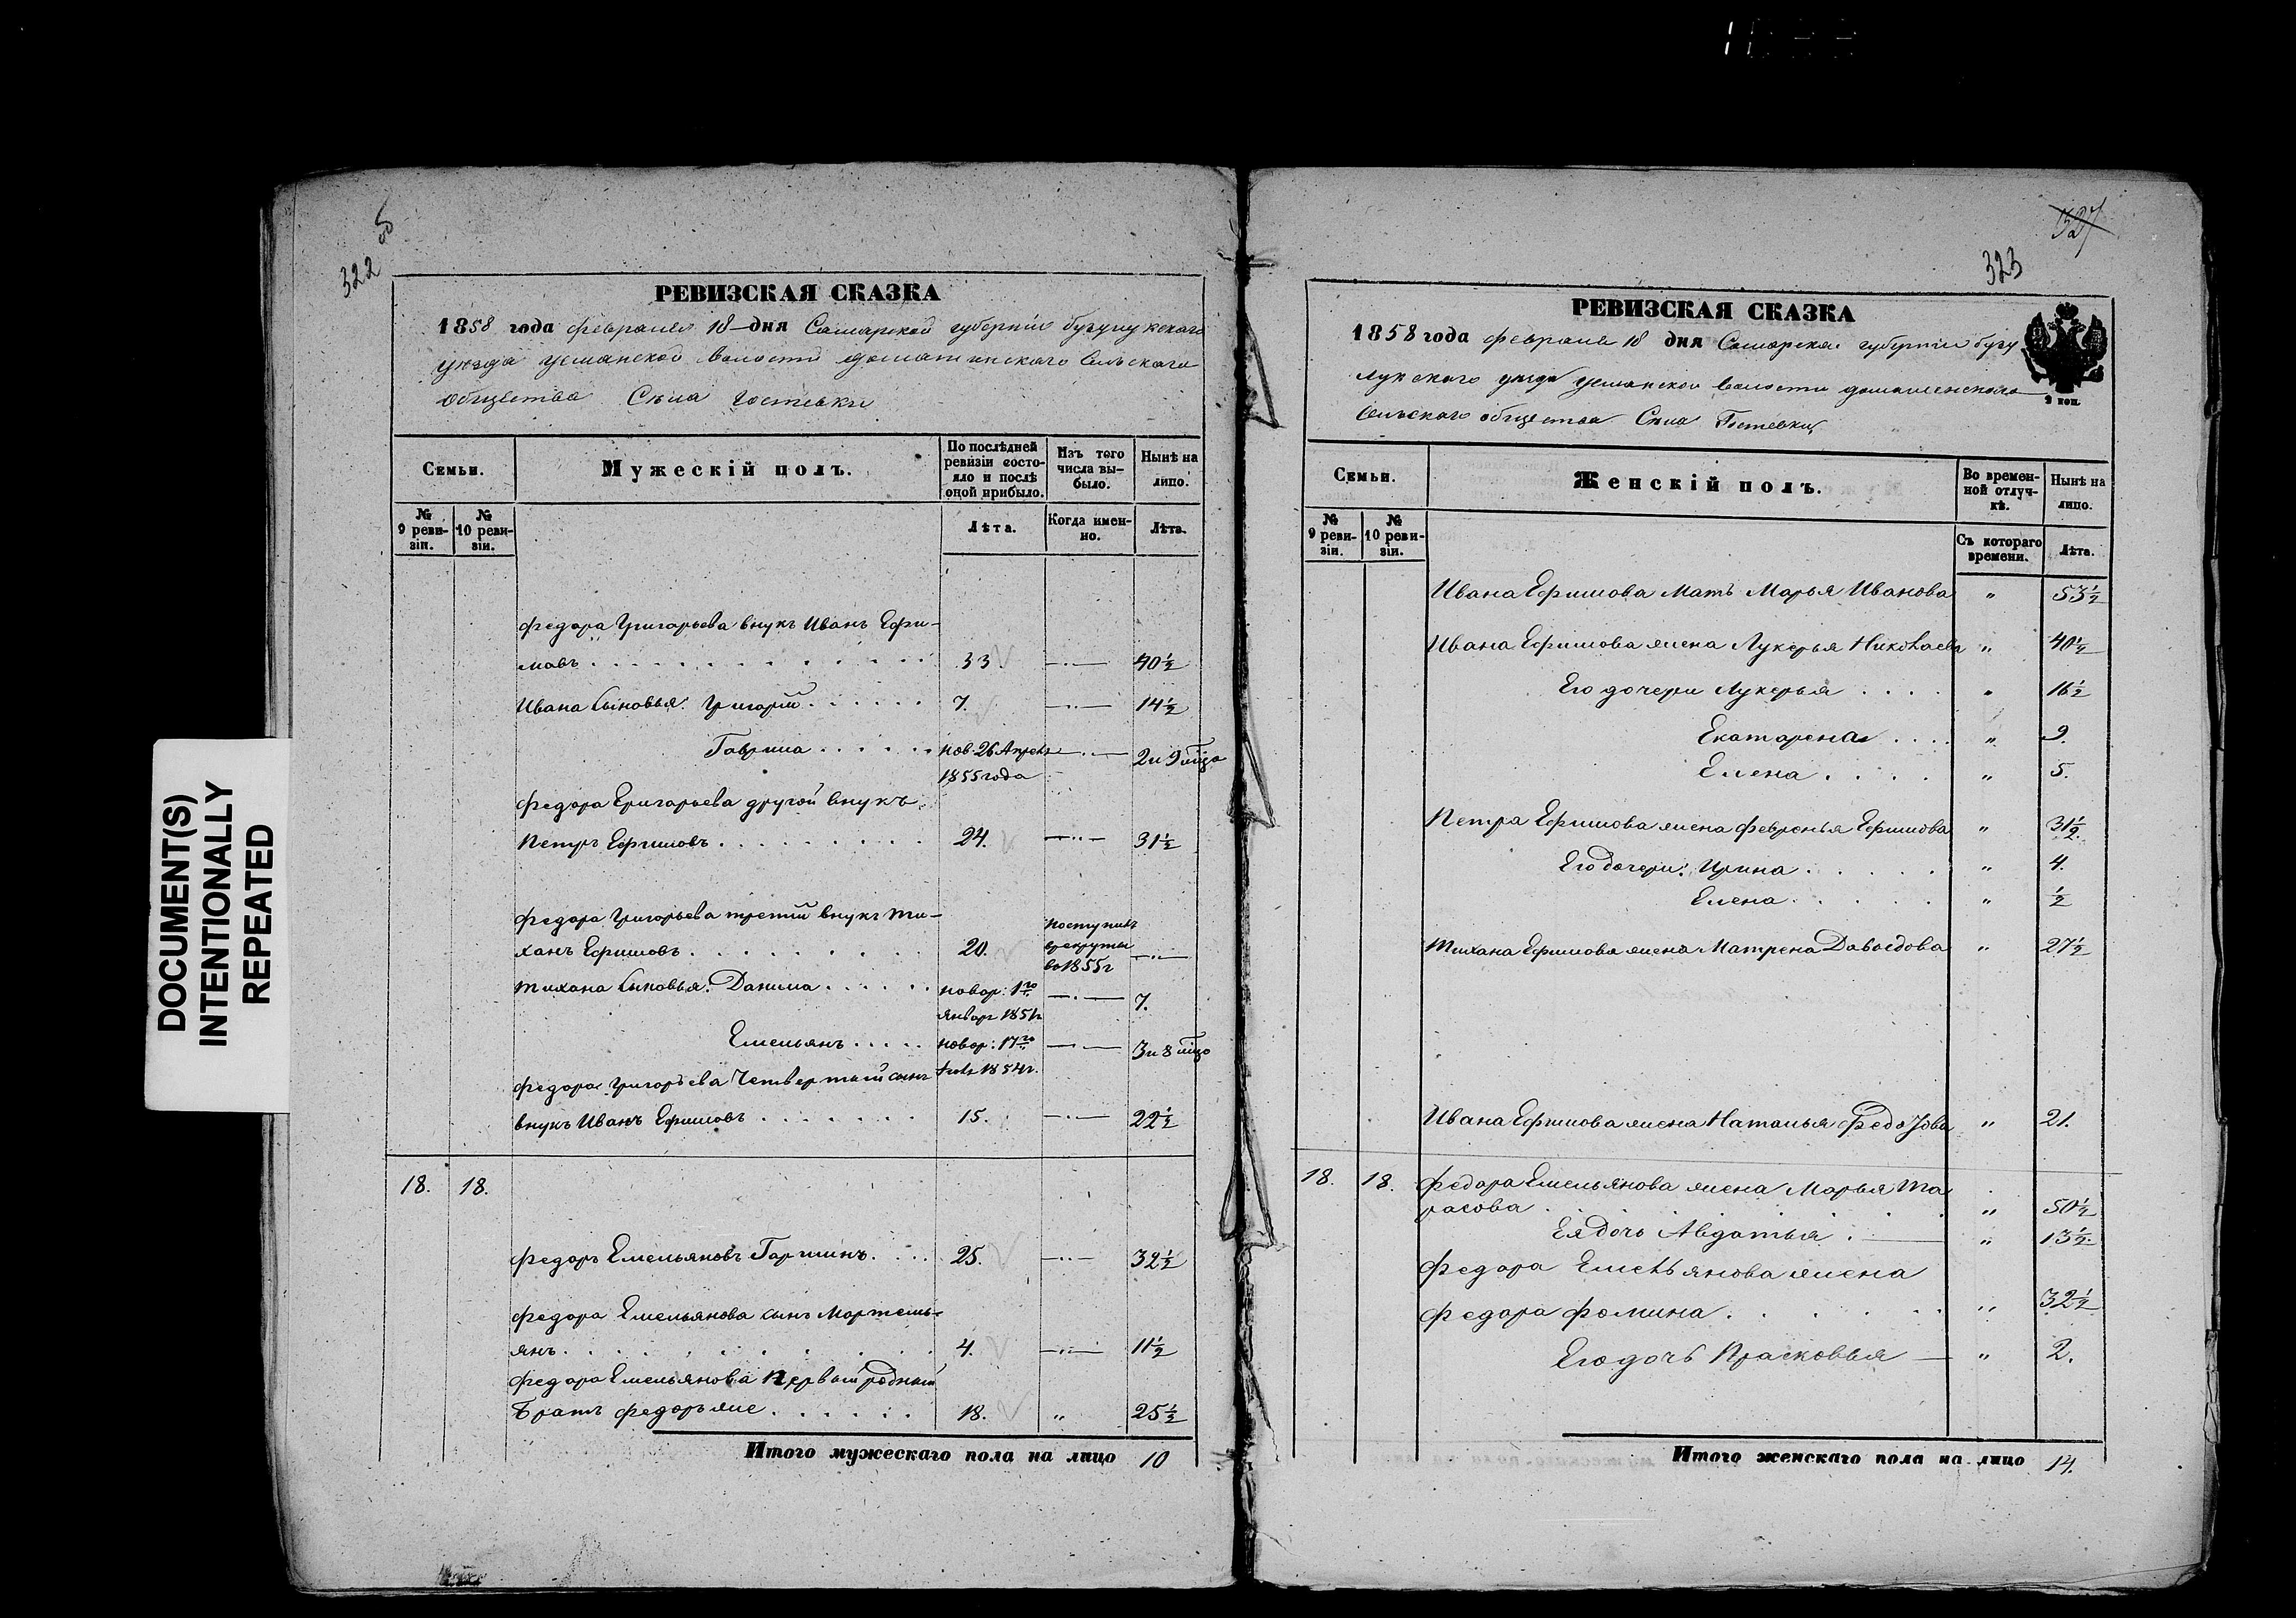 DOCUMENT(S)
INTENTIONALLY
REPEATED
322 об
РЕВИЗСКАЯ СКАЗКА
1858 года февраля 18 дня Самарской губернии бугулукского
уезда усманской волости домашкинского сельского
общества Села Гостевки
Семьи.
Мужескій полъ.
По послѣдней ревизіи состояло и послѣ оной прибыло.
Изъ того числа выбыло.
Нынѣ на лицо.
№ 9 ревизіи.
№ 10 ревизіи.
Лѣта.
Когда именно.
Лѣта.
Федора Григорьева внукъ Иванъ Ефи-
мовъ . . . 33. 40½
Ивана Сыновья: Григорій . . . 7. 14½
Гаврила . . . нов. 26 Апреля 2 и 9 м̃ца
1855 года
Федора Григорьева другой внукъ
Петръ Ефимовъ . . . 24. 31½
Федора Григорьева третий внукъ Ти-
ханъ Ефимовъ . . . 20. поступилъ в рекруты во 1855г
Тихана Сыновья: Данила . . . новор: 1го 7.
январ 1851г
Емельянъ . . . новор: 17го 3 и 8 м̃цо
1854г.
Федора Григорьева Четвертый сынъ
внукъ Иванъ Ефимовъ . . . 15. 22½
18. 18.
Федоръ Емельяновъ Гаршинъ . . . 25. 32½
Федора Емельянова сынъ Мартемь-
янъ . . . 4. 11½
Федора Емельянова Первый родный
Братъ Федоръ же . . . 18. " 25½
Итого мужескаго пола на лицо 10
327
323
РЕВИЗСКАЯ СКАЗКА
1858 года февраля 18 дня Самарской губернии бугу
лукского уезда усманской волости домашкенского
сельского общества Села Гостевки
9 коп.
Семьи.
Женскій полъ.
Во временной отлучкѣ.
Нынѣ на лицо.
№ 9 ревизіи.
№ 10 ревизіи.
Съ котораго времени.
Лѣта.
Ивана Ефимова Мать Марья Иванова " 53½
Ивана Ефимова жена Лукерья Николаева " 40½
Его дочери Лукерья . . . " 16½
Екатерена . . . " 9.
Елена . . . " 5.
Петра Ефимова жена Февронья Ефимова " 31½
Его дочери: Ирина . . . " 4.
Елена . . . " ½
Тихана Ефимова жена Матрена Давыдова " 27½
Ивана Ефимова жена Наталья Федорова " 21.
18. 18. Федора Емельянова жена Марья Та
расова . . . " 50½
Ея дочь Авдатья . " 13½
Федора Емельянова жена
Федора Фомина . . . " 32½
Его дочь Прасковья " 2.
Итого женскаго пола на лицо 14.